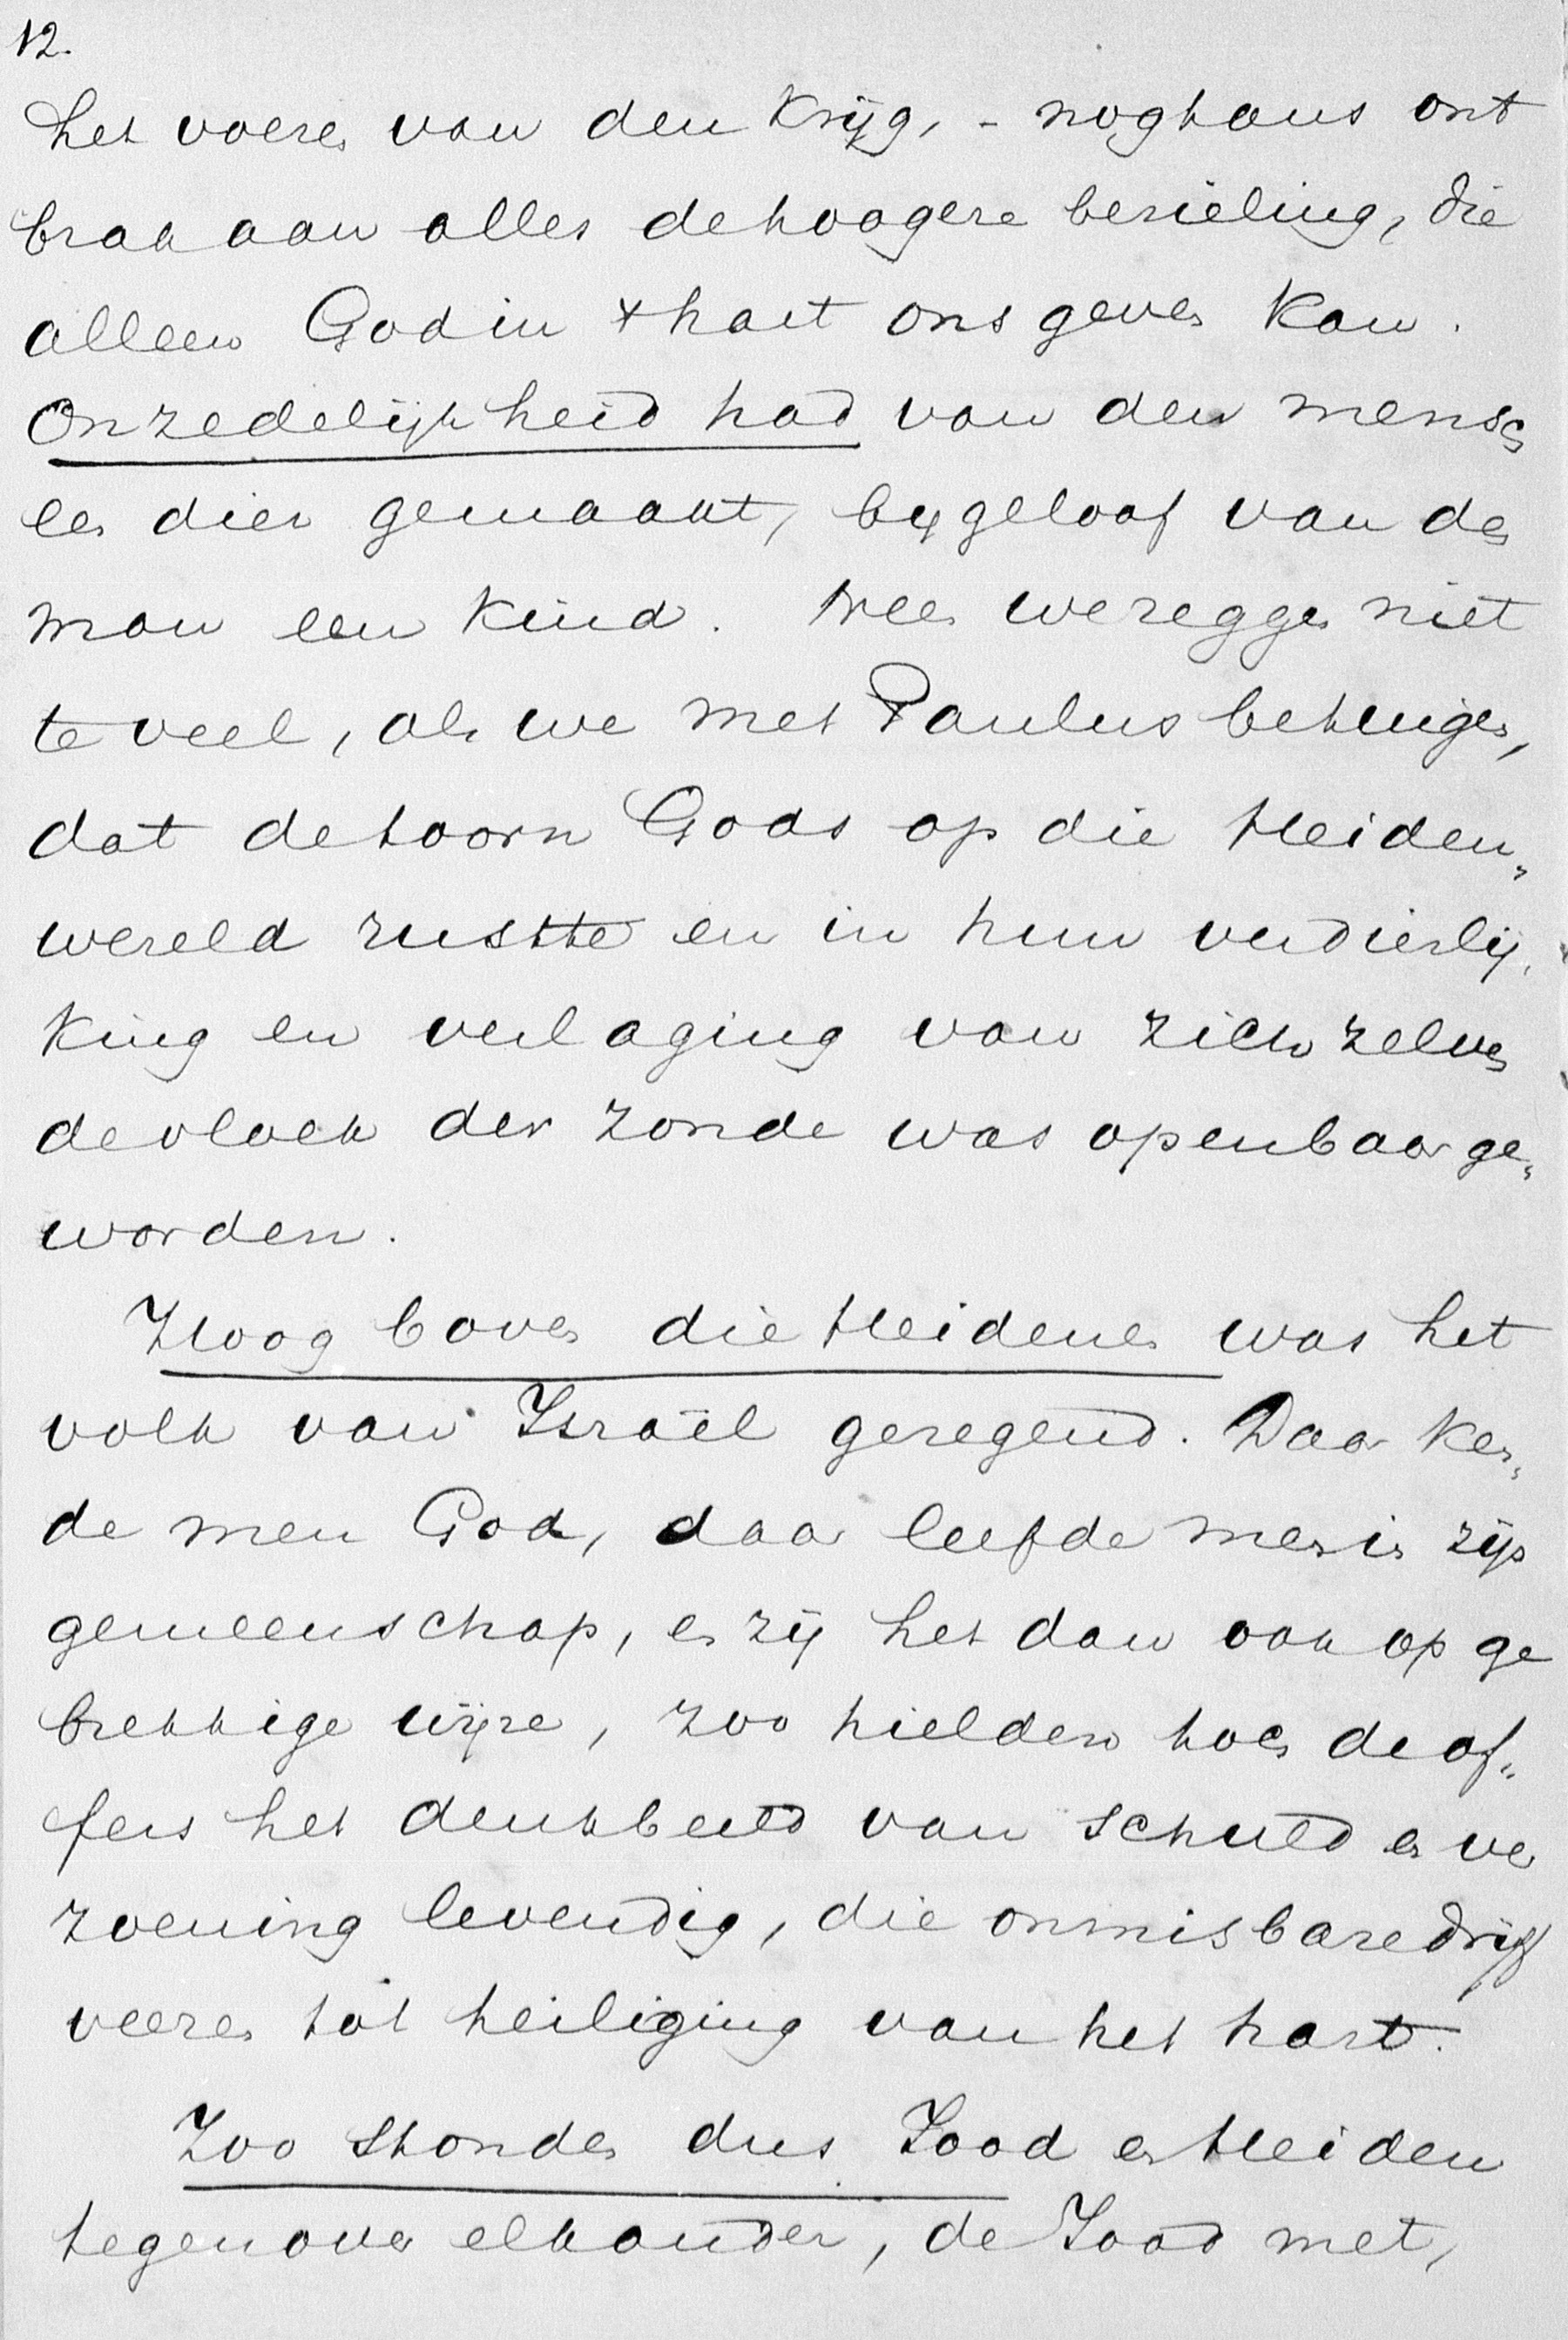 12.
het voeren van den Krijg, - nogtans ont
brak aan alles de hoogere bezieling, die
alleen God in 't hart ons geven kan.
Onzedelijkheid had van den mensch
een dier gemaakt, bijgeloof van den
man een kind. Neen we zeggen niet
te veel, als we met Paulus betuigen,
dat de toorn Gods op die Heiden„
wereld rustte en in hun verdierlij„
king en verlaging van zich zelven
de vloek der zonde was openbaar ge„
worden.
Hoog boven die Heidenen was het
volk van Israël gezegend. Daar ken„
de men God, daar leefde men in zijn
gemeenschap, en zij het dan ook op ge
brekkige wijze, zoo hielden toch de of„
fers het denkbeeld van schuld en ver
zoening levendig, die onmisbare drijf
veeren tot heiliging van het hart.
Zoo stonden dus Jood en Heiden
tegenover elkander, de Jood met,